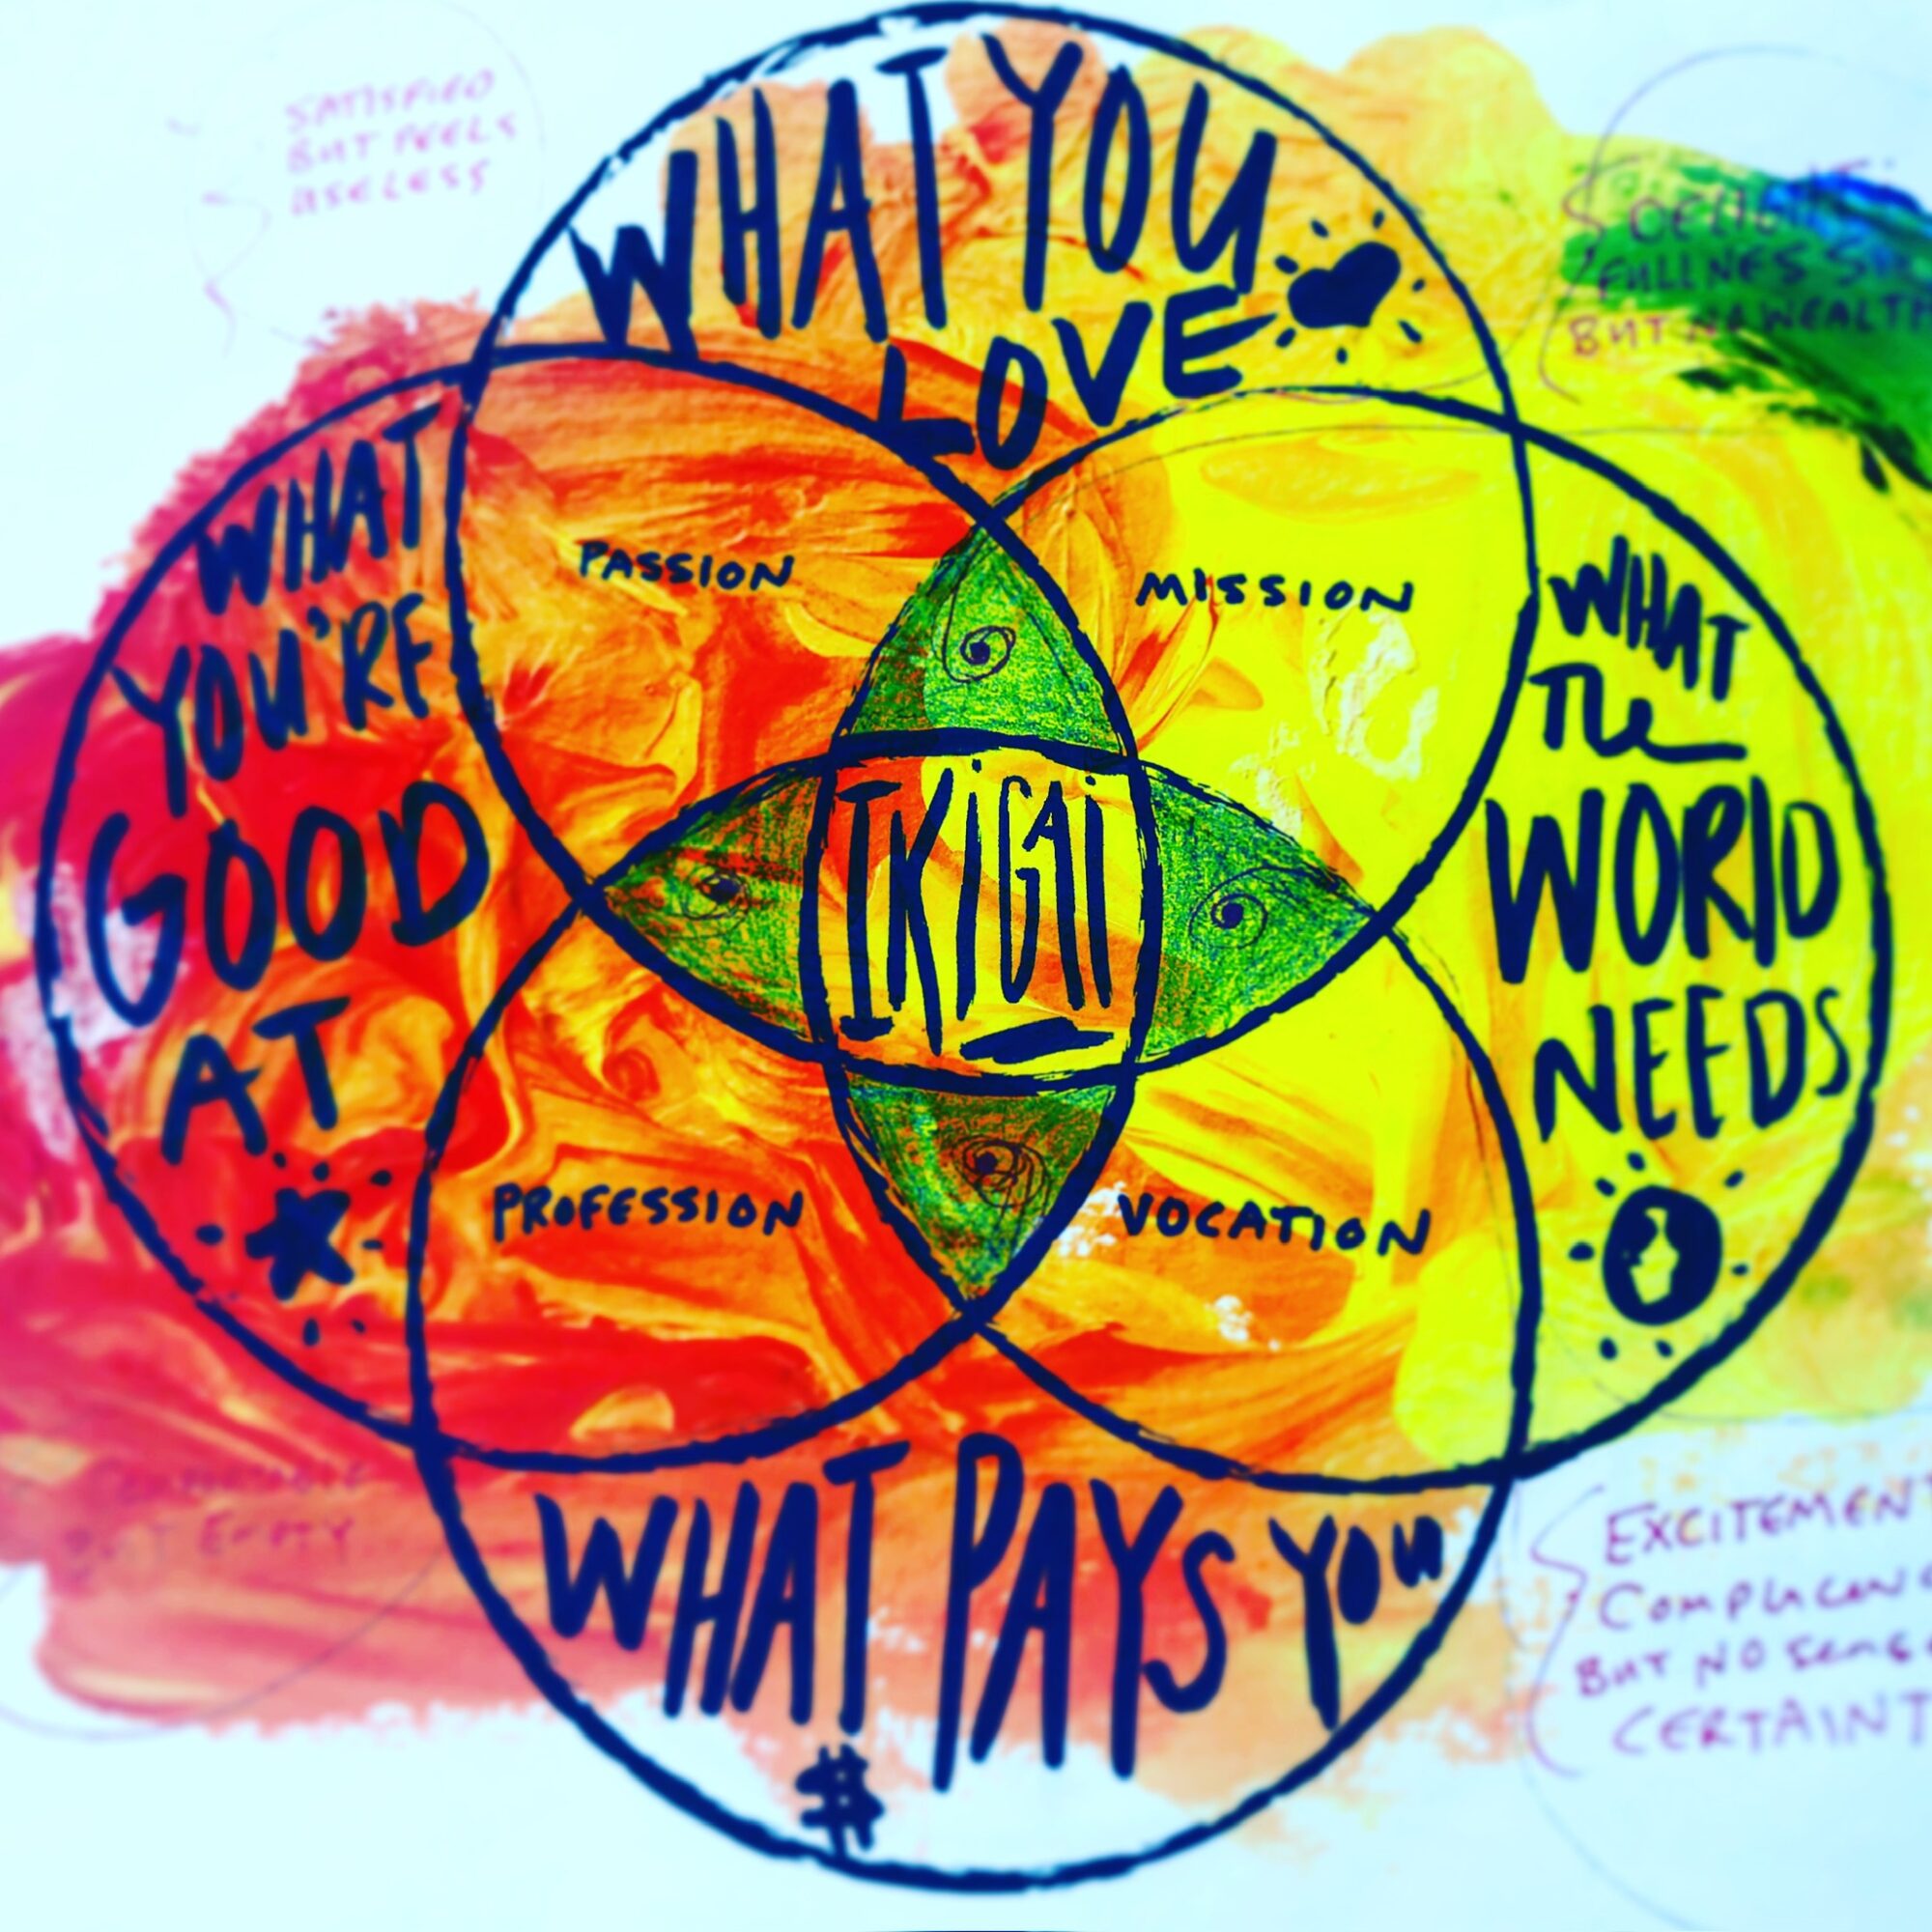 SATISFIED
BUT FEELS
USELESS
WHAT YOU
LOVE
FULLNESS
BUT NO WEALTH
WHAT
YOU'RE
GOOD
AT
PASSION
MISSION
WHAT
The
WORLD
NEEDS
IKIGAI
PROFESSION
VOCATION
BUT EMPTY
WHAT PAYS YOU
$
EXCITEMENT
BUT NO SENSE